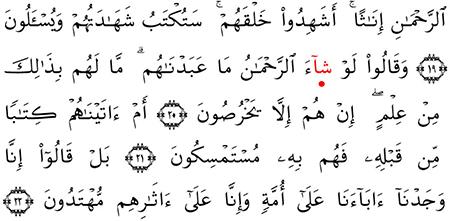 ٱلرَّحْمَٰنِ إِنَٰثًا ۚ أَشَهِدُوا۟ خَلْقَهُمْ ۚ سَتُكْتَبُ شَهَٰدَتُهُمْ وَيُسْـَٔلُونَ
﴿١٩﴾ وَقَالُوا۟ لَوْ شَآءَ ٱلرَّحْمَٰنُ مَا عَبَدْنَٰهُم ۗ مَّا لَهُم بِذَٰلِكَ
مِنْ عِلْمٍ ۖ إِنْ هُمْ إِلَّا يَخْرُصُونَ ﴿٢٠﴾ أَمْ ءَاتَيْنَٰهُمْ كِتَٰبًا
مِّن قَبْلِهِۦ فَهُم بِهِۦ مُسْتَمْسِكُونَ ﴿٢١﴾ بَلْ قَالُوٓا۟ إِنَّا
وَجَدْنَآ ءَابَآءَنَا عَلَىٰٓ أُمَّةٍ وَإِنَّا عَلَىٰٓ ءَاثَٰرِهِم مُّهْتَدُونَ ﴿٢٢﴾